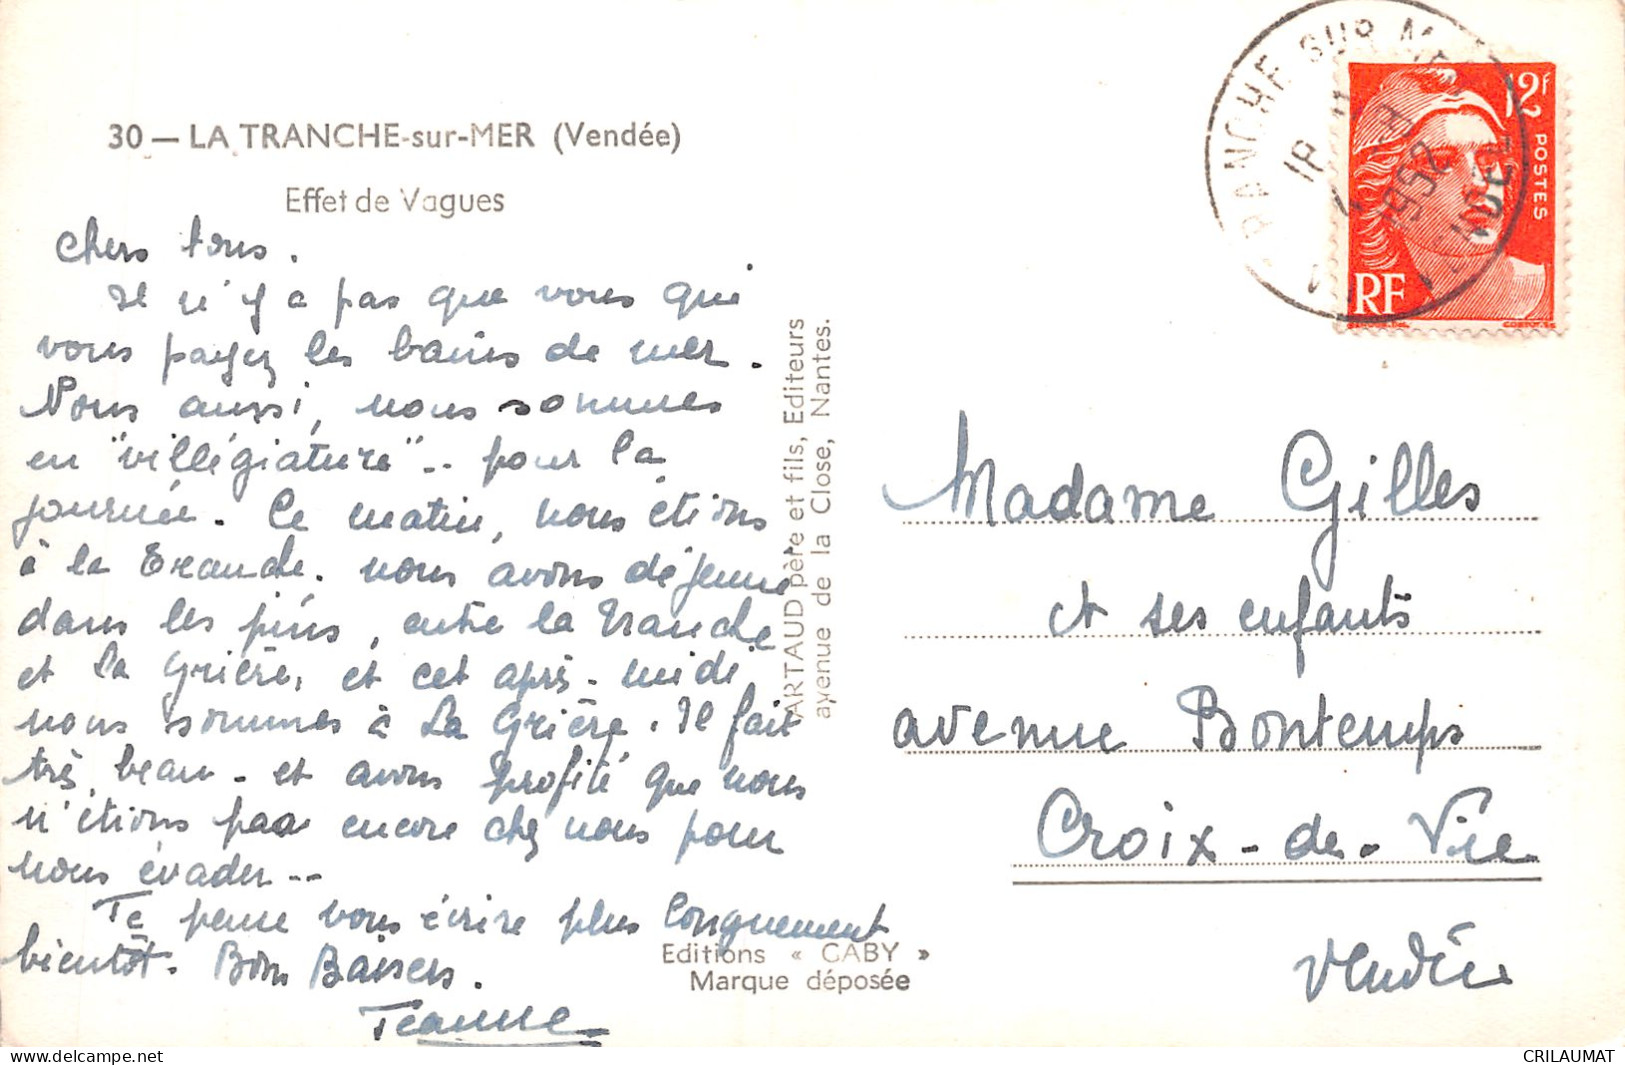 30 — LA TRANCHE-sur-MER (Vendée)
Effet de Vagues
Chers tous.
Il n'y a pas que vous qui
vous payez les bains de mer.
Nous aussi, nous sommes
en "villégiature" -- pour la
journée. Ce matin, nous étions
à la Tranche. nous avons déjeuné
dans les pins, entre la Tranche
et La Grière, et cet après-midi
nous sommes à La Grière. Il fait
très beau - et avons profité que nous
n'étions pas encore chez nous pour
nous évader --
Je pense vous écrire plus longuement
bientôt. Bons Baisers.
Jeanne
ARTAUD père et fils, Editeurs
avenue de la Close, Nantes.
Editions « GABY »
Marque déposée
TRANCHE SUR MER
18
1952
VENDEE
12F
POSTES
RF
Madame Gilles
et ses enfants
avenue Bontemps
Croix-de-Vie
Vendée
CRILAUMAT